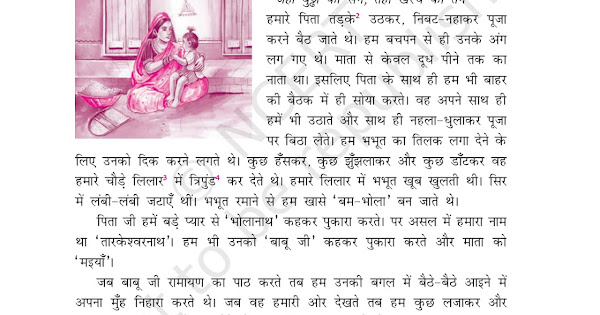 हमारे पिता तड़के² उठकर, निबट-नहाकर पूजा
करने बैठ जाते थे। हम बचपन से ही उनके अंग
लग गए थे। माता से केवल दूध पीने तक का
नाता था। इसलिए पिता के साथ ही हम भी बाहर
की बैठक में ही सोया करते। वह अपने साथ ही
हमें भी उठाते और साथ ही नहला-धुलाकर पूजा
पर बिठा लेते। हम भभूत का तिलक लगा देने के
लिए उनको दिक करने लगते थे। कुछ हँसकर, कुछ झुँझलाकर और कुछ डाँटकर वह
हमारे चौड़े लिलार³ में त्रिपुंड⁴ कर देते थे। हमारे लिलार में भभूत खूब खुलती थी। सिर
में लंबी-लंबी जटाएँ थीं। भभूत रमाने से हम खासे ‘बम-भोला’ बन जाते थे।
पिता जी हमें बड़े प्यार से ‘भोलानाथ’ कहकर पुकारा करते। पर असल में हमारा नाम
था ‘तारकेश्वरनाथ’। हम भी उनको ‘बाबू जी’ कहकर पुकारा करते और माता को
‘मइयाँ’।
जब बाबू जी रामायण का पाठ करते तब हम उनकी बगल में बैठे-बैठे आइने में
अपना मुँह निहारा करते थे। जब वह हमारी ओर देखते तब हम कुछ लजाकर और